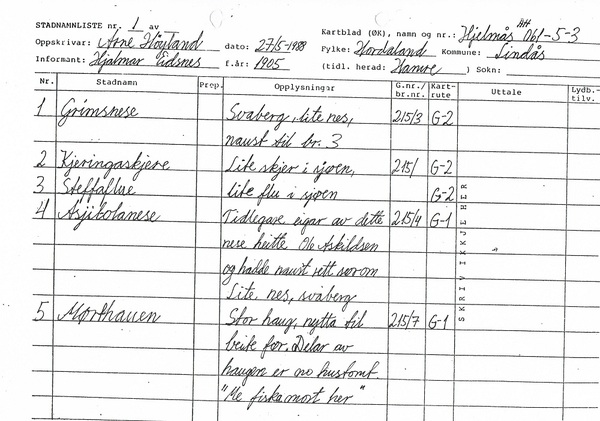 STADNAMNLISTE nr. 1 av
Kartblad (ØK), namn og nr.: Hjelmås 061-5-3
Oppskrivar: Arne Høyland dato: 27/5-1988 Fylke: Hordaland Kommune: Lindås
Informant: Hjalmar Eidsnes f.år: 1905 (tidl. herad: Hamre ) Sokn:
Nr. Stadnamn Prep. Opplysningar G.nr./br.nr. Kart-rute Uttale Lydb.-tilv.
1 Grimsnese Svaberg, lite nes, 215/3 G-2
naust til br. 3
2 Kjeringaskjere Lite skjer i sjøen, 215/ G-2
3 Steffaflue lite flu i sjøen G-2
4 Asjikolanese Tidlegare eigar av dette 215/4 G-1
nese heitte Ole Askildsen
og hadde naust rett sørom
Lite nes, svaberg
5 Morthauen Stor haug, nytta til 215/7 G-1
beite før. Delar av
haugen er no hustomt.
"Me fiska mort her"
SKRIV IKKJE HER